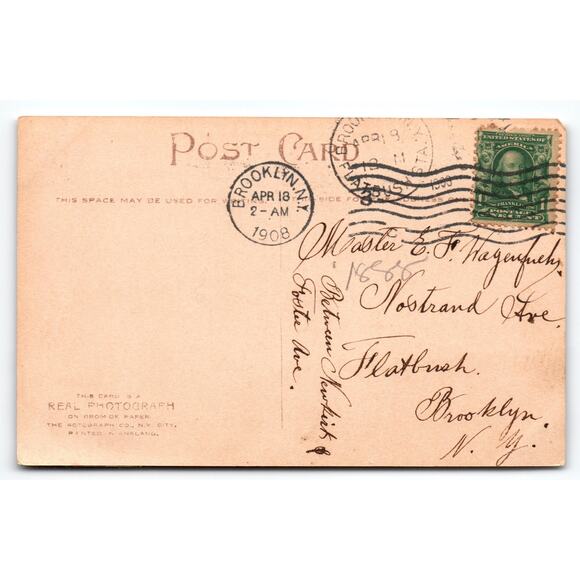 POST CARD
THIS SPACE MAY BE USED FOR
SIDE FOR
BROOKLYN, N.Y.
APR 18
2-AM
1908
APR 18
FLATBUSH STA.
1908
THE UNITED STATES OF
AMERICA
FRANKLIN
POSTAGE
ONE CENT
Master E. F. Hagenfuehr,
1888
Nostrand Ave.
Flatbush.
Brooklyn.
N. Y.
Between Newkirk &
Foster Ave.
THIS CARD IS A
REAL PHOTOGRAPH
ON BROMIDE PAPER.
THE ROTOGRAPH CO., N.Y. CITY.
PRINTED IN ENGLAND.